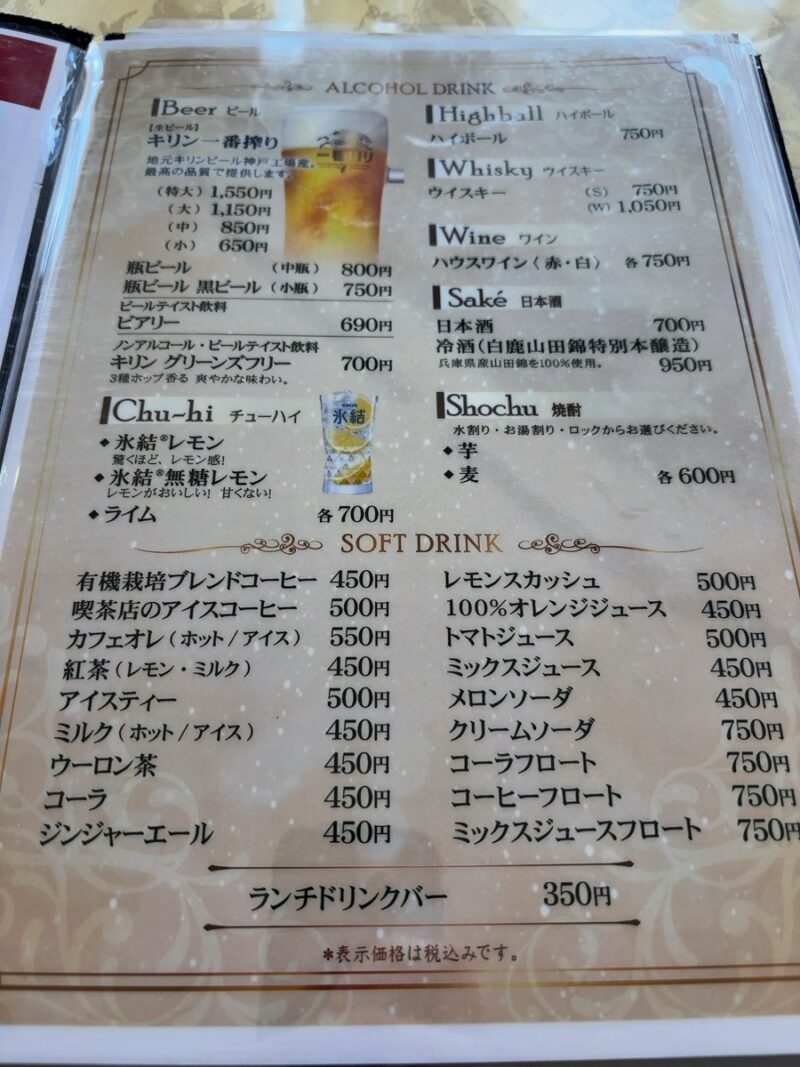 ALCOHOL DRINK
Beer ビール
【生ビール】
キリン一番搾り
地元キリンビール神戸工場産。
最高の品質で提供します。
(特大) 1,550円
(大) 1,150円
(中) 850円
(小) 650円
瓶ビール (中瓶) 800円
瓶ビール 黒ビール (小瓶) 750円
ビールテイスト飲料
ビアリー 690円
ノンアルコール・ビールテイスト飲料
キリン グリーンズフリー 700円
3種ホップ香る 爽やかな味わい。
Chu-hi チューハイ
◆氷結®レモン
驚くほど、レモン感!
◆氷結®無糖レモン
レモンがおいしい! 甘くない!
◆ライム 各700円
氷結
Highball ハイボール
ハイボール 750円
Whisky ウイスキー
ウイスキー (S) 750円
(W) 1,050円
Wine ワイン
ハウスワイン(赤・白) 各750円
Saké 日本酒
日本酒 700円
冷酒(白鹿山田錦特別本醸造)
兵庫県産山田錦を100%使用。 950円
Shochu 焼酎
水割り・お湯割り・ロックからお選びください。
◆芋
◆麦 各600円
SOFT DRINK
有機栽培ブレンドコーヒー 450円
喫茶店のアイスコーヒー 500円
カフェオレ(ホット/アイス) 550円
紅茶(レモン・ミルク) 450円
アイスティー 500円
ミルク(ホット/アイス) 450円
ウーロン茶 450円
コーラ 450円
ジンジャーエール 450円
レモンスカッシュ 500円
100%オレンジジュース 450円
トマトジュース 500円
ミックスジュース 450円
メロンソーダ 450円
クリームソーダ 750円
コーラフロート 750円
コーヒーフロート 750円
ミックスジュースフロート 750円
ランチドリンクバー 350円
*表示価格は税込みです。